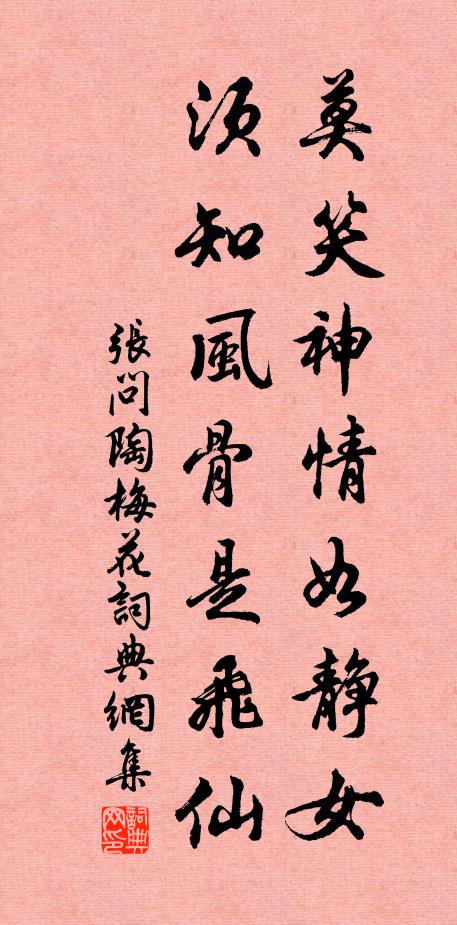 莫笑神情如静女
須知風骨是飛仙
張問陶梅花詞典網集
詞典
网印